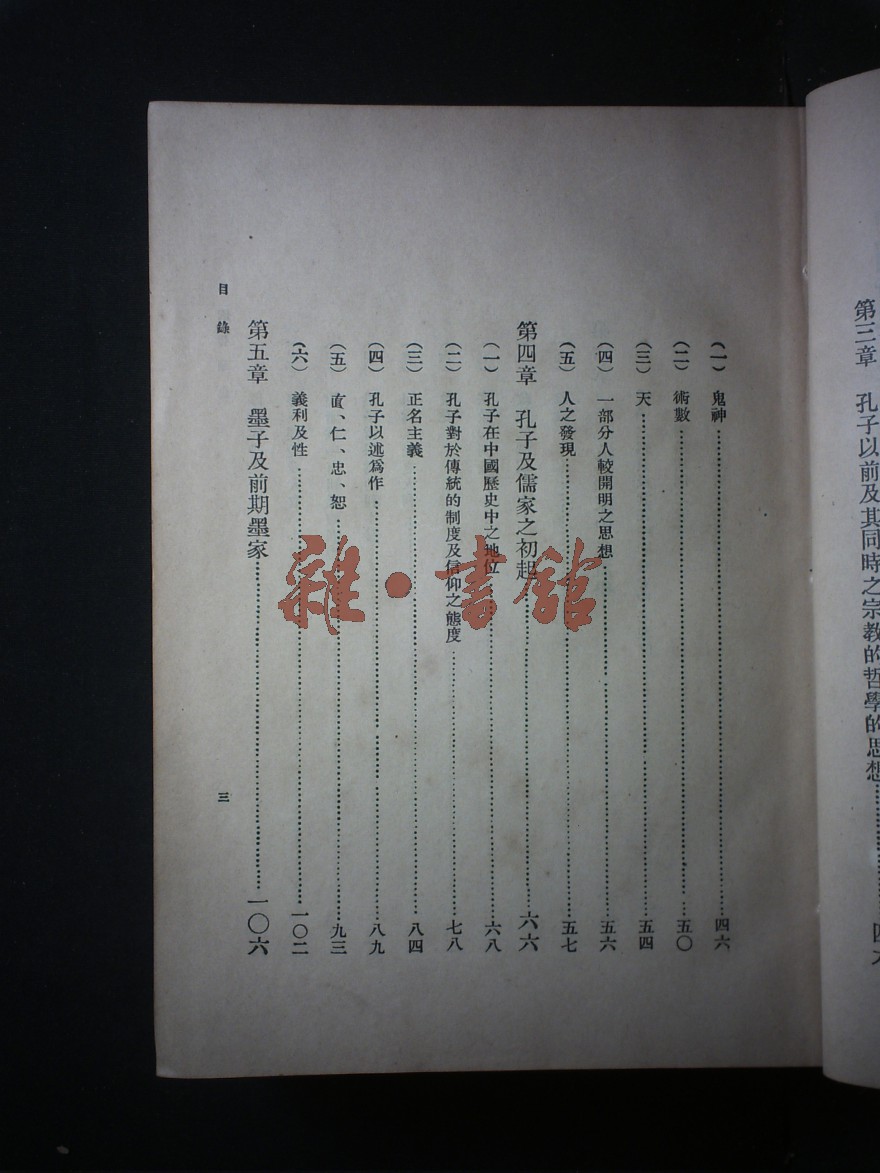 第三章　孔子以前及其同時之宗教的哲學的思想…………四六
（一）　鬼神…………四六
（二）　術數…………五〇
（三）　天…………五四
（四）　一部分人較開明之思想…………五六
（五）　人之發現…………五七
第四章　孔子及儒家之初起…………六六
（一）　孔子在中國歷史中之地位…………六八
（二）　孔子對於傳統的制度及信仰之態度…………七八
（三）　正名主義…………八四
（四）　孔子以述爲作…………八九
（五）　直、仁、忠、恕…………九三
（六）　義利及性…………一〇二
第五章　墨子及前期墨家…………一〇六
目錄
三
雜·書館